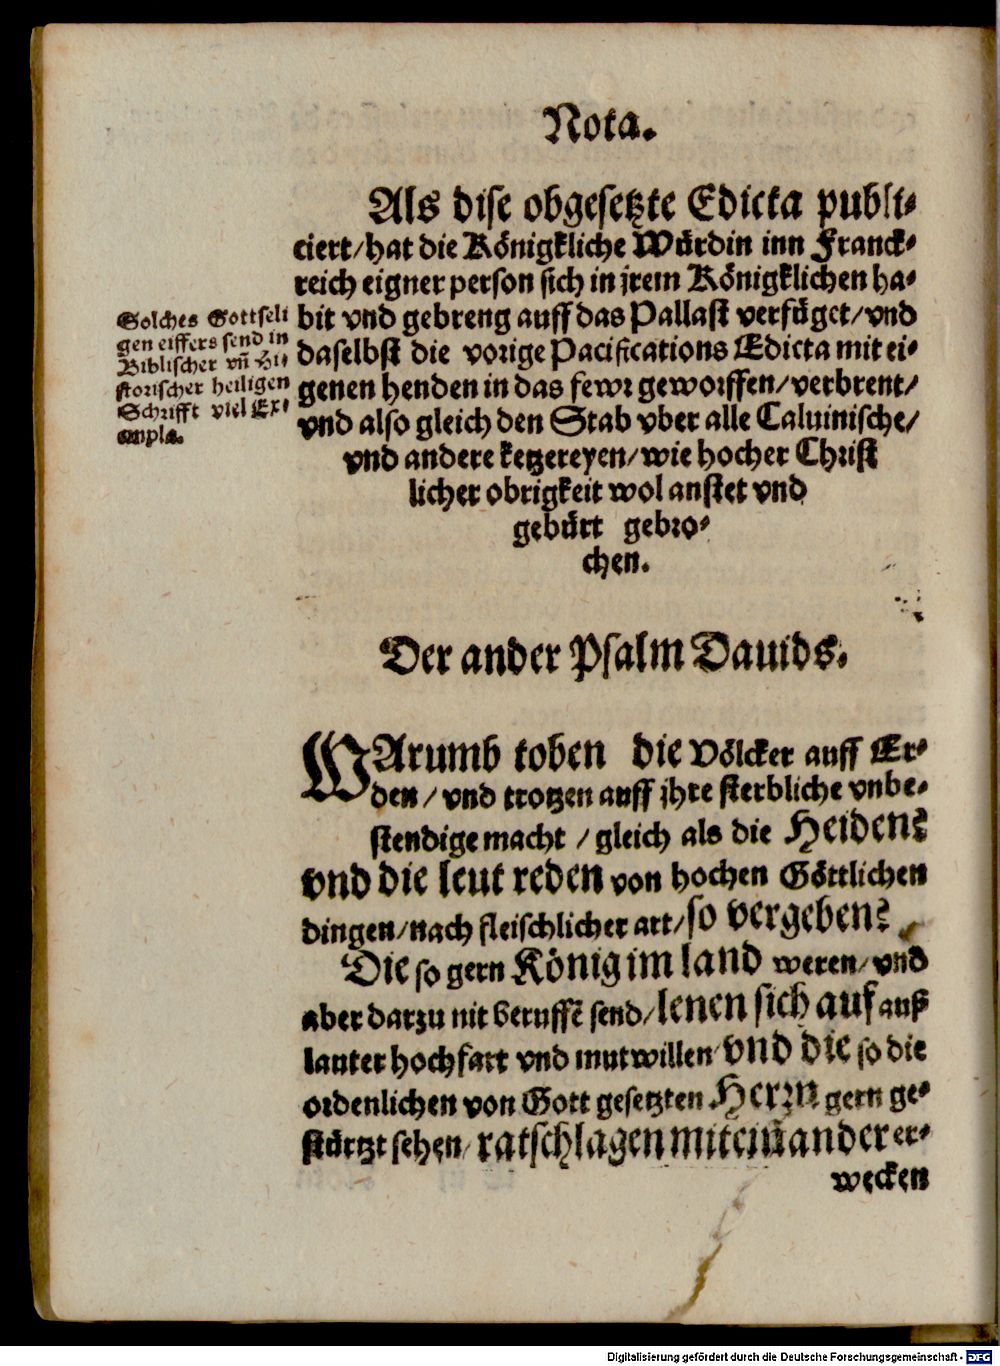 Nota.
Als dise obgesetzte Edicta publi-
ciert/hat die Königkliche Würdin inn Franck-
reich eigner person sich in jrem Königklichen ha-
bit vnd gebreng auff das Pallast verfüget/vnd
daselbst die vorige Pacifications Edicta mit ei-
genen henden in das fewr geworffen/verbrent/
vnd also gleich den Stab vber alle Caluinische/
vnd andere ketzereyen/wie hocher Christ
licher obrigkeit wol anstet vnd
gebürt gebro-
chen.
Solches Gottseli
gen eiffers send in
Biblischer vñ Hi-
storischer heiligen
Schrifft viel Ex-
empla.
Der ander Psalm Dauids.
WArumb toben die Völcker auff Er-
den/ vnd trotzen auff jhre sterbliche vnbe-
stendige macht /gleich als die Heiden?
vnd die leut reden von hochen Göttlichen
dingen/nach fleischlicher art/so vergeben?
Die so gern König im land weren/vnd
aber darzu nit beruffẽ send/lenen sich auf auß
lauter hochfart vnd mutwillen vnd die so die
ordenlichen von Gott gesetzten Herrn gern ge-
stürtzt sehen/ratschlagen miteinander er-
wecken
Digitalisierung gefördert durch die Deutsche Forschungsgemeinschaft - DFG